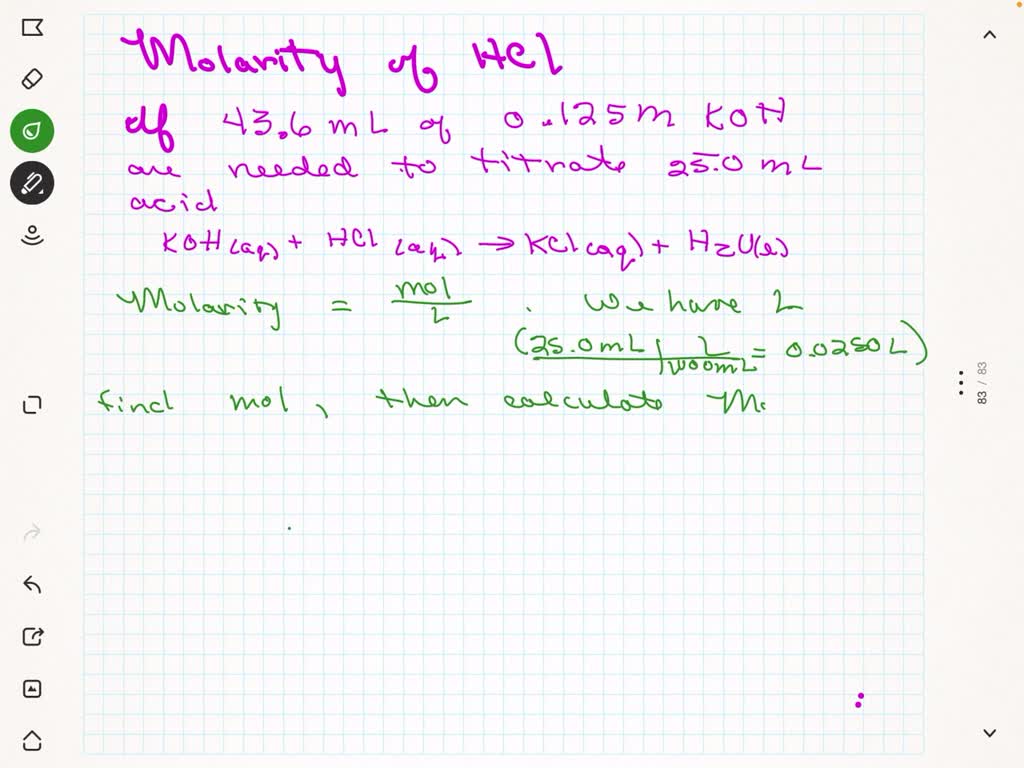 Molarity of HCl
If 43.6 mL of 0.125 M KOH
are needed to titrate 25.0 mL
acid
KOH(aq) + HCl (aq) → KCl(aq) + H2O(l)
Molarity = mol/L . We have L
(25.0mL | L/1000mL = 0.0250L)
find mol, then calculate M
83 / 83